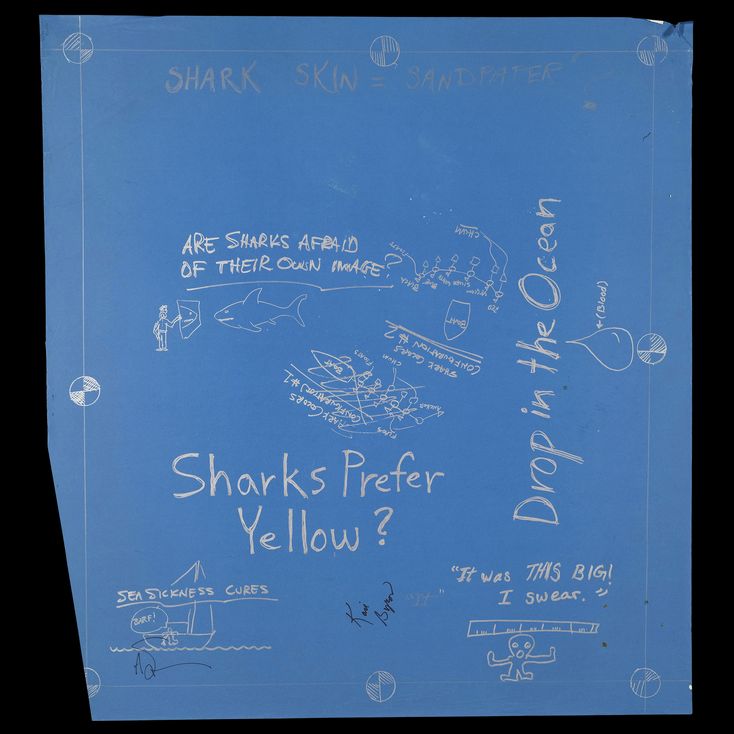 SHARK SKIN = SANDPAPER?
ARE SHARKS AFRAID
OF THEIR OWN IMAGE?
CHUM
BOAT
SHARK COLORS
CONFIGURATION #2
BOAT
CHUM
CONFIGURATION #1
Drop in the Ocean
(Blood)
Sharks Prefer
Yellow?
SEA SICKNESS CURES
BARF!
Kari
Byron
"It was THIS BIG!
I swear."